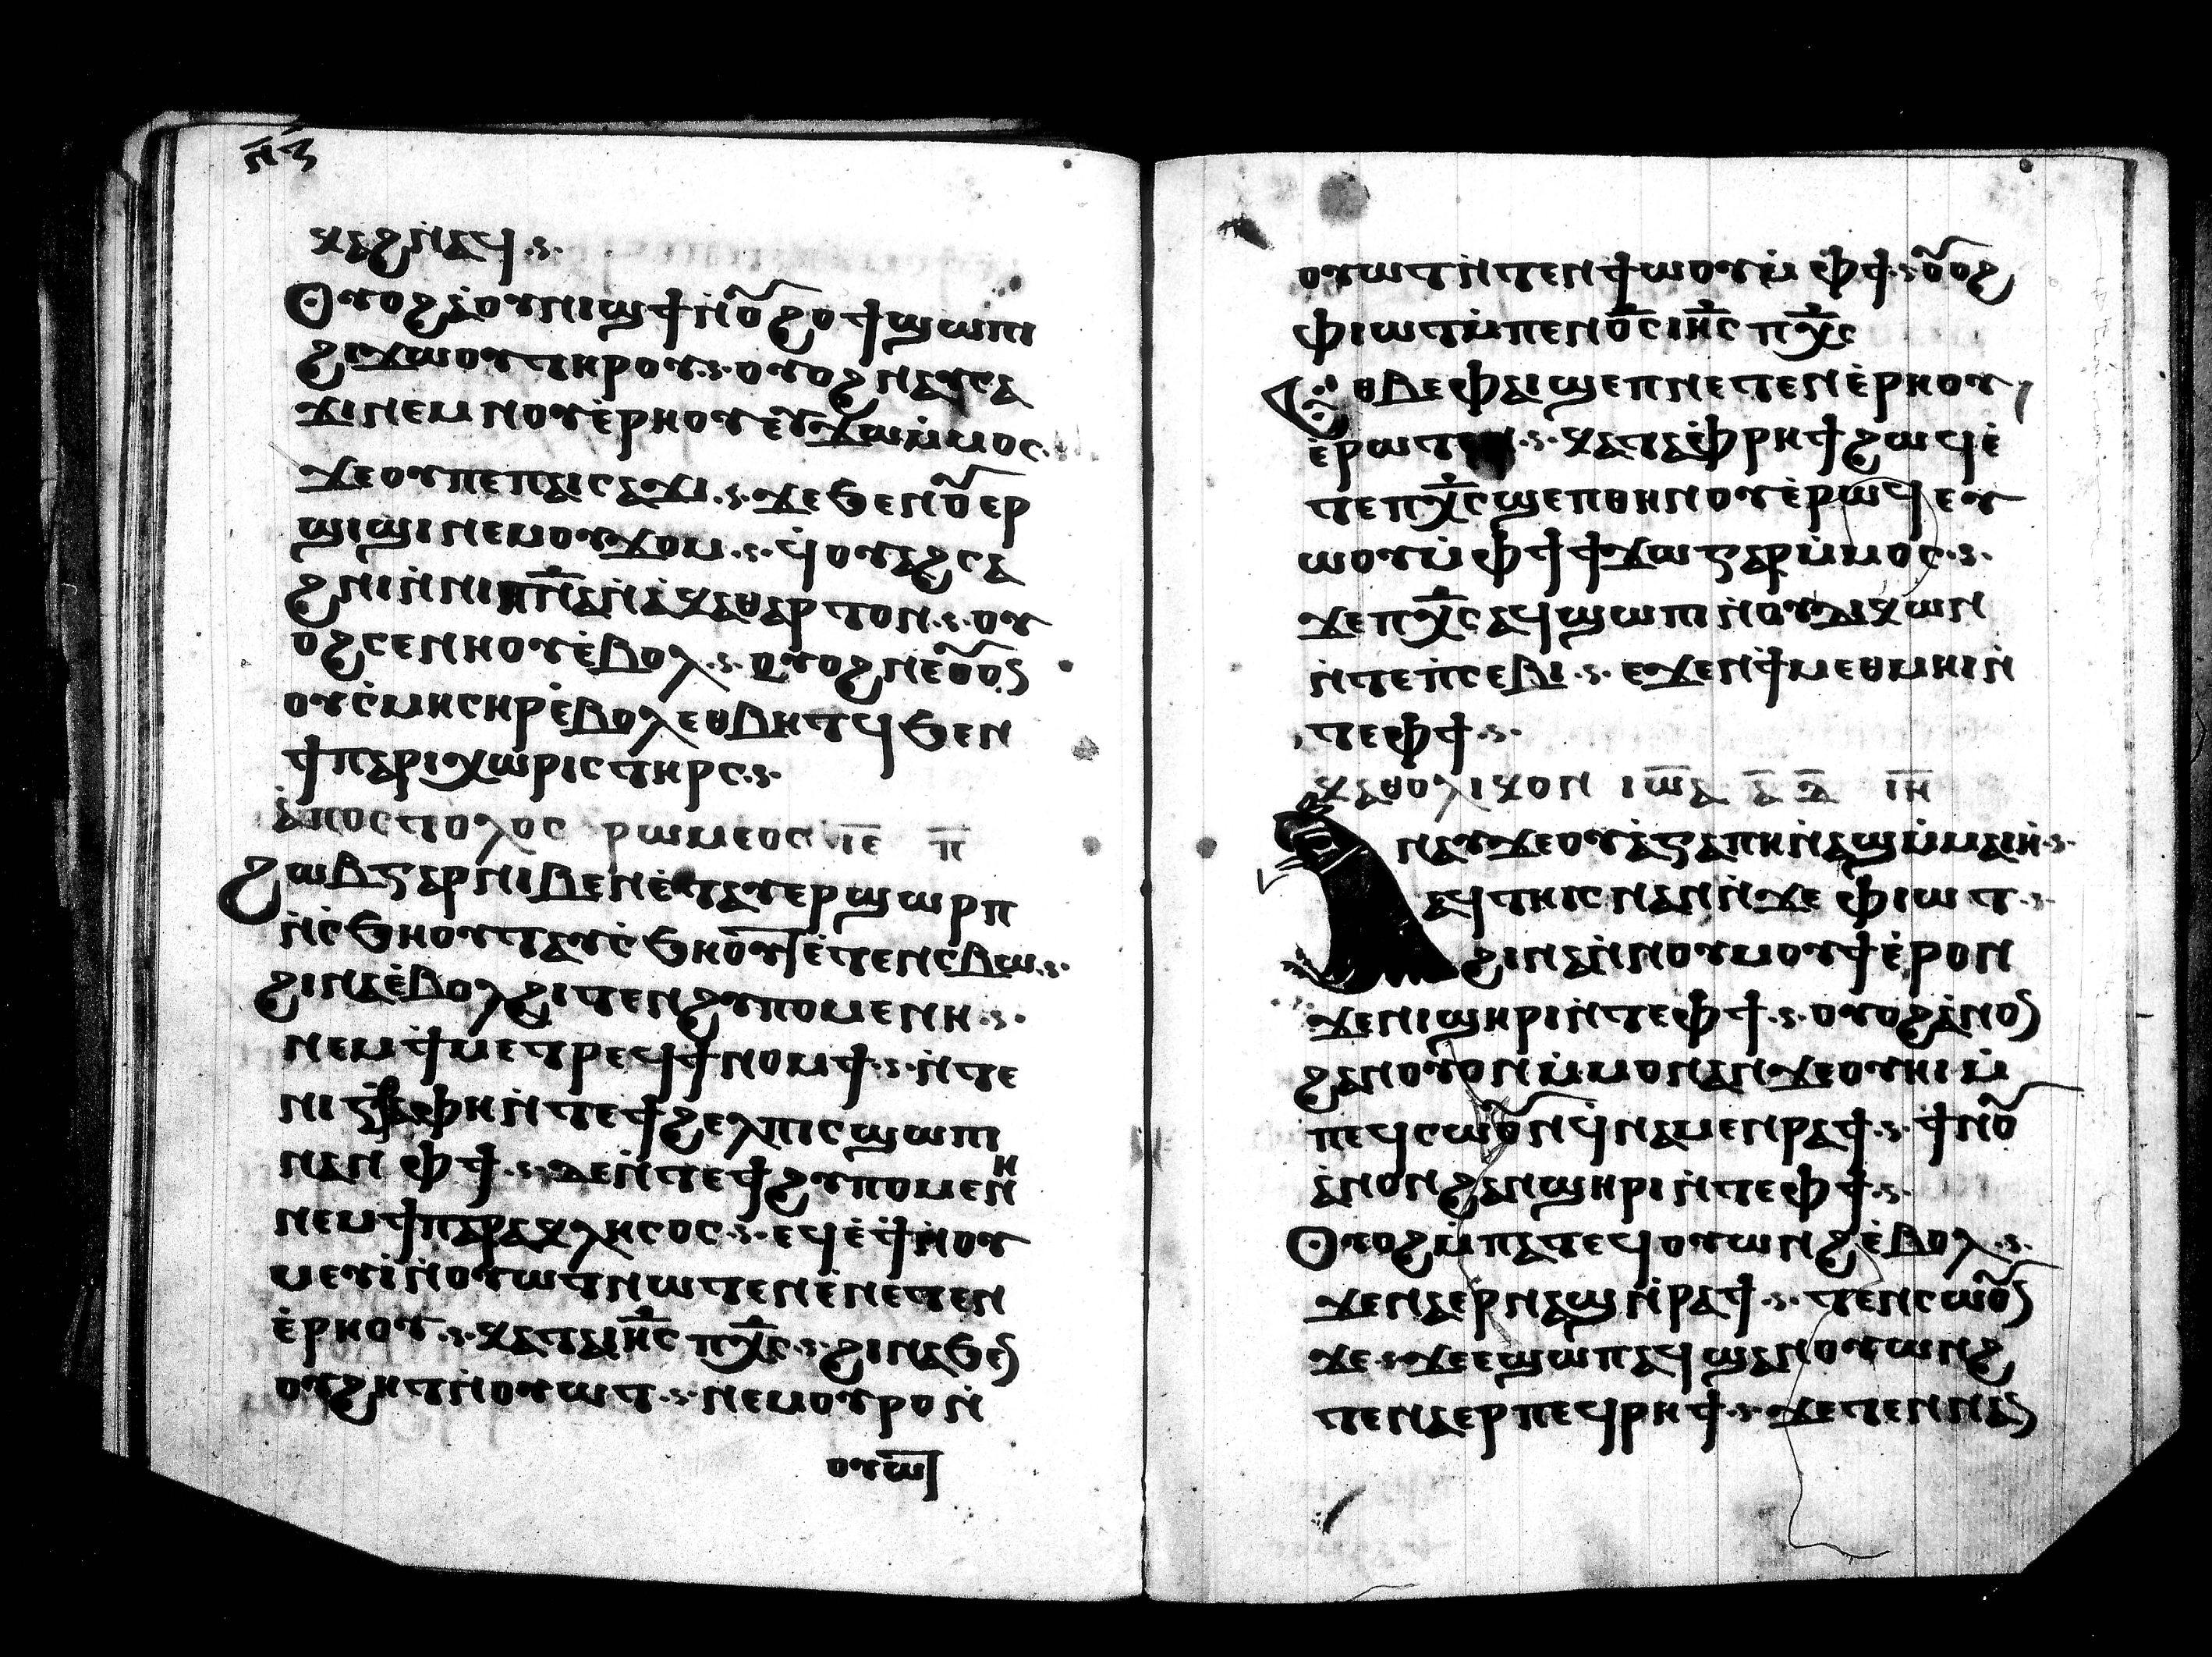 ⲛ̅ⲍ̅
ⲕⲁϩ ⲛⲁϥ ·ⲋ·
Ⲟⲩⲟϩ ⲁ̀ⲟⲩⲛⲓϣϯ ⲛ̀ⲟⲩϩⲟϯ ϣⲱⲡⲓ
ϩⲓϫⲱⲟⲩ ⲧⲏⲣⲟⲩ ·ⲋ· ⲟⲩⲟϩ ⲛⲁⲩⲥⲁ
ϫⲓ ⲛⲉⲙ ⲛⲟⲩⲉ̀ⲣⲏⲟⲩ ⲉⲩϫⲱ ⲙ̀ⲙⲟⲥ·
ϫⲉ ⲟⲩ ⲡⲉ ⲡⲁⲓⲥⲁϫⲓ ·ⲋ· ϫⲉ ϧⲉⲛ ⲟⲩⲉⲣ
ϣⲓϣⲓ ⲛⲉⲙ ⲟⲩϫⲟⲙ ·ⲋ· ϥ̀ⲟⲩⲁϩⲥⲁ
ϩⲛⲓ ⲛ̀ⲛⲓⲡⲛ̅ⲁ̅ ⲛ̀ⲁ̀ⲕⲁⲑⲁⲣⲧⲟⲛ ·ⲋ· ⲟⲩ
ⲟϩ ⲥⲉⲛⲏⲟⲩ ⲉ̀ⲃⲟⲗ ·ⲋ· ⲟⲩⲟϩ ⲛⲉⲟⲩⲟⲛ
ⲟⲩⲥ̀ⲙⲏ ⲥⲏⲣ ⲉ̀ⲃⲟⲗ ⲉⲑⲃⲏⲧϥ ϧⲉⲛ
ϯⲡⲁⲣⲓⲭⲱⲣⲓⲥ ⲧⲏⲣⲥ ·ⲋ·
ⲁ̀ⲡⲟⲥⲧⲟⲗⲟⲥ ⲣⲱⲙⲉⲟⲥ ⲓ̅ⲉ̅ ⲡ̅
Ϩⲱⲃ ⲅⲁⲣ ⲛⲓⲃⲉⲛ ⲉ̀ⲧⲁⲩⲉⲣϣⲱⲣⲡ
ⲛ̀ⲥ̀ϧⲏⲟⲩⲧⲁⲩⲥ̀ϧⲏⲟⲩ̅ⲧ ⲉ̀ⲧⲉⲛⲥⲃⲱ ·ⲋ·
ϩⲓⲛⲁ ⲉ̀ⲃⲟⲗ ϩⲓⲧⲉⲛ ϩⲩⲡⲟⲙⲉⲛⲏ ·ⲋ·
ⲛⲉⲙ ϯⲙⲉⲧⲣⲉϥϯⲛⲟⲙϯ ·ⲋ· ⲛ̀ⲧⲉ
ⲛⲓⲅⲣⲁⲫⲏ ⲛ̀ⲧⲉϯϩⲉⲗⲡⲓⲥ ϣⲱⲡⲓ
ⲛⲁⲛ ⲫϯ ·ⲋ· ⲇⲉ ⲛ̀ⲧⲉϯϩⲩⲡⲟⲙⲉⲛⲏ
ⲛⲉⲙ ϯⲡⲁⲣⲁⲕⲗⲏⲥⲟⲥ ·ⲋ· ⲉϥⲉ̀ϯ ⲛ̀ⲟⲩ
ⲙⲉⲩⲓ̀ ⲛ̀ⲟⲩⲱⲧ ⲛⲱⲧⲉⲛ ⲉ̀ⲛⲉⲧⲉⲛ
ⲉ̀ⲣⲏⲟⲩ ·ⲋ· ⲕⲁⲧⲁ ⲓⲏ̅ⲥ ⲡⲭ̅ⲥ ·ⲋ· ϩⲓⲛⲁ ϧⲉⲛ
ⲟⲩϩⲏⲧ ⲛ̀ⲟⲩⲱⲧ ·ⲋ· ⲛⲉⲙ ⲟⲩⲣⲟ ⲛ̀
ⲟⲩⲱ̅ⲧ
ⲟⲩⲱⲧ ⲛ̀ⲧⲉⲛϯⲱⲟⲩ ⲙ̀ⲫϯ ·ⲋ· ⲟⲩⲟϩ
ⲫⲓⲱⲧ ⲙ̀ⲡⲉⲛⲟ̅ⲥ ⲓⲏ̅ⲥ ⲡⲭ̅ⲥ
Ⲉⲑⲃⲉ ⲫⲁⲓ ϣⲉⲡ ⲛⲉⲧⲉⲛⲉ̀ⲣⲏⲟⲩ
ⲉ̀ⲣⲱⲧⲉⲛ ·ⲋ· ⲕⲁⲧⲁ ⲉ̀ⲫⲣⲏϯ ϩⲱϥ ⲉ̀
ⲧⲉ ⲡⲭ̅ⲥ ϣⲉⲡ ⲑⲏⲛⲟⲩ ⲉ̀ⲣⲱϥ ⲉⲩ
ⲱⲟⲩ ⲙ̀ⲫϯ ϯϫⲱ ⲅⲁⲣ ⲙ̀ⲙⲟⲥ ·ⲋ·
ϫⲉ ⲡⲭ̅ⲥ ⲁϥϣⲱⲡⲓ ⲛ̀ⲟⲩⲇⲓⲕⲱⲛ
ⲛ̀ⲧⲉ ⲡ̀ⲥⲉⲃⲓ ·ⲋ· ⲉϫⲉⲛ ϯⲙⲉⲑⲙⲏⲓ ⲛ̀
ⲧⲉ ⲫϯ ·ⲋ·
ⲕⲁⲑⲟⲗⲓⲕⲟⲛ ⲓⲱ̅ⲁ ⲁ̅ ⲁ̅ ⲓ̅ⲏ̅
ⲛⲁⲩ ϫⲉ ⲟⲩⲁ̀ⲅⲁⲡⲏ ⲛ̀ⲁϣ ⲙ̀ⲙⲁⲓⲏ ·ⲋ·
ⲁϥⲧⲏⲓⲥ ⲛⲁⲛ ⲛ̀ϫⲉ ⲫⲓⲱⲧ ·ⲋ·
ϩⲓⲛⲁ ⲛ̀ⲛⲟⲩⲙⲟⲩϯ ⲉ̀ⲣⲟⲛ
ϫⲉ ⲛⲓϣⲏⲣⲓ ⲛ̀ⲧⲉ ⲫϯ ·ⲋ· ⲟⲩⲟϩ ⲁ̀ⲛⲟⲛ
ϩⲁⲛⲟⲩⲟⲛ ⲙ̀ⲙⲟⲛ ⲁⲛ ϫⲉ ⲟⲩⲏⲓ ⲙ̀
ⲡⲉϥⲥⲱⲟⲩⲛ ϥ̀ⲛⲁⲙⲉⲛⲣⲁϯ ·ⲋ· ϯⲛⲟⲩ
ⲁ̀ⲛⲟⲛ ϩⲁⲛϣⲏⲣⲓ ⲛ̀ⲧⲉ ⲫϯ ·ⲋ·
Ⲟⲩⲟϩ ⲙ̀ⲡⲁⲧⲉϥⲟⲩⲱⲛϩ ⲉ̀ⲃⲟⲗ ·ⲋ·
ϫⲉ ⲛⲁⲉⲣ ⲛⲁϣ ⲛ̀ⲣⲁϯ ·ⲋ· ⲧⲉⲛⲥⲱⲟⲩⲛ
ϫⲉ ·ⲋ· ϫⲉ ⲉϣⲱⲡ ⲁϥϣⲁⲛⲟⲩⲱⲛϩ
ⲧⲉⲛⲁⲉⲣ ⲡⲉϥⲣⲏϯ ·ⲋ· ϫⲉ ⲧⲉⲛⲛⲁⲛ